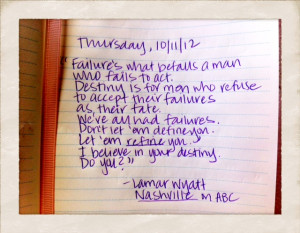 Thursday, 10/11/12
"Failure's what befalls a man
who fails to act.
Destiny is for men who refuse
to accept their failures
as, their fate.
We've all had failures.
Don't let 'em define you.
Let 'em refine you.
I believe in your destiny.
Do you?"
-Lamar Wyatt
Nashville on ABC